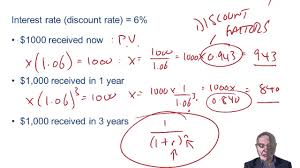 Interest rate (discount rate) = 6%
DISCOUNT
FACTORS
• $1000 received now : P.V.
x (1.06) = 1000 ∴ x = 1000/1.06 = 1000 x 0.943 = 943
• $1,000 received in 1 year
x (1.06)³ = 1000 ∴ x = 1000 x 1/1.06³ = 1000 x 0.840 = 840
• $1,000 received in 3 years
1/(1+r)ⁿ